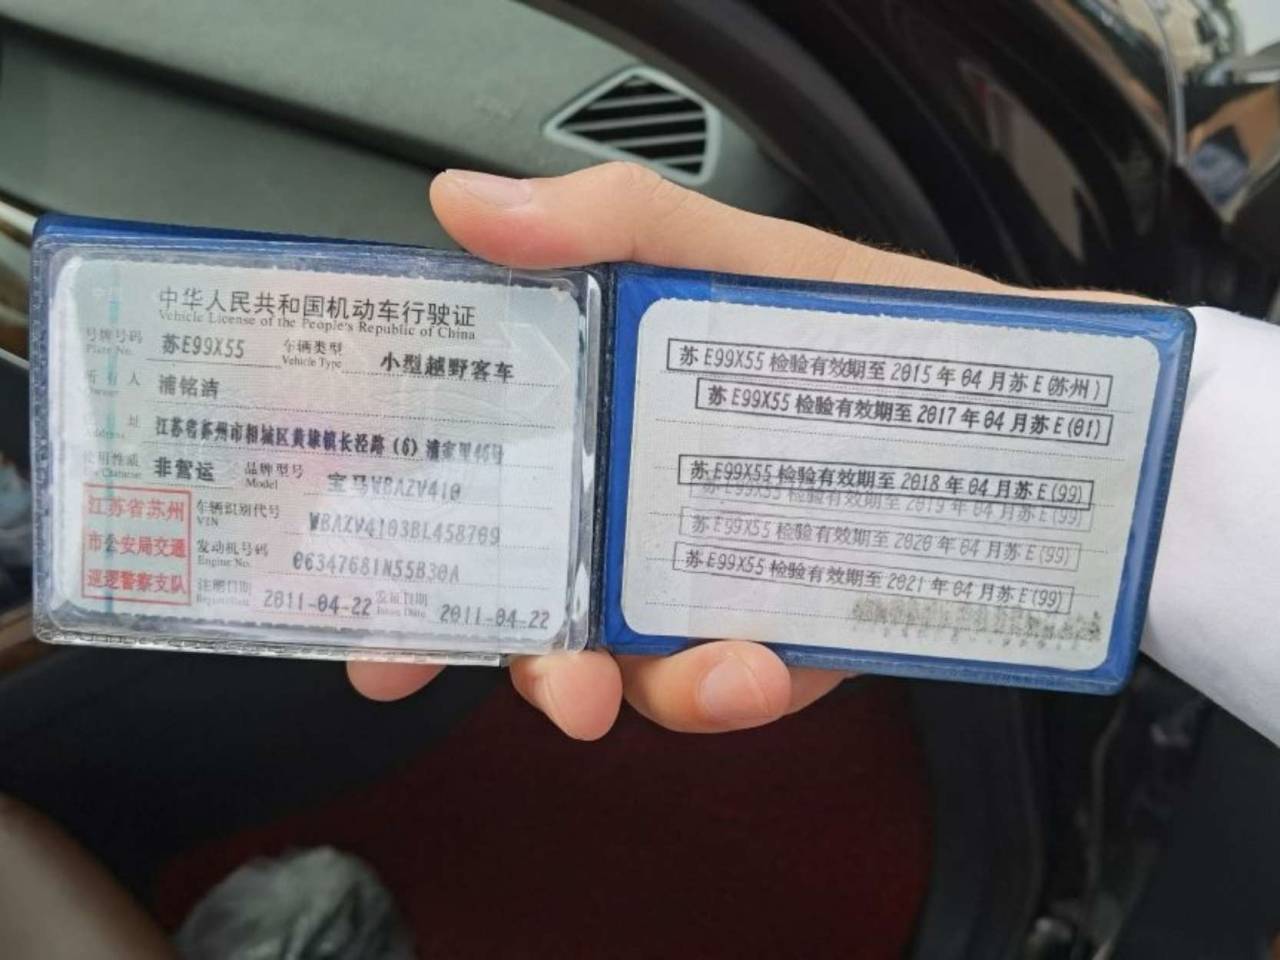 中华人民共和国机动车行驶证
Vehicle License of the People's Republic of China
号牌号码 苏E99X55 车辆类型 小型越野客车
Plate No. Vehicle Type
所有人 浦铭洁
址 江苏省苏州市相城区黄埭镇长泾路(6)浦家里46号
Address
使用性质 非营运 品牌型号 宝马WBAZV410
Use Character Model
江苏省苏州
市公安局交通
巡逻警察支队
车辆识别代号 WBAZV4103BL458709
VIN
发动机号码 06347681N55B30A
Engine No.
注册日期 2011-04-22 发证日期 2011-04-22
Issue Date
苏E99X55检验有效期至2015年04月苏E(苏州)
苏E99X55检验有效期至2017年04月苏E(01)
苏E99X55检验有效期至2018年04月苏E(99)
苏E99X55检验有效期至2019年04月苏E(99)
苏E99X55检验有效期至2020年04月苏E(99)
苏E99X55检验有效期至2021年04月苏E(99)